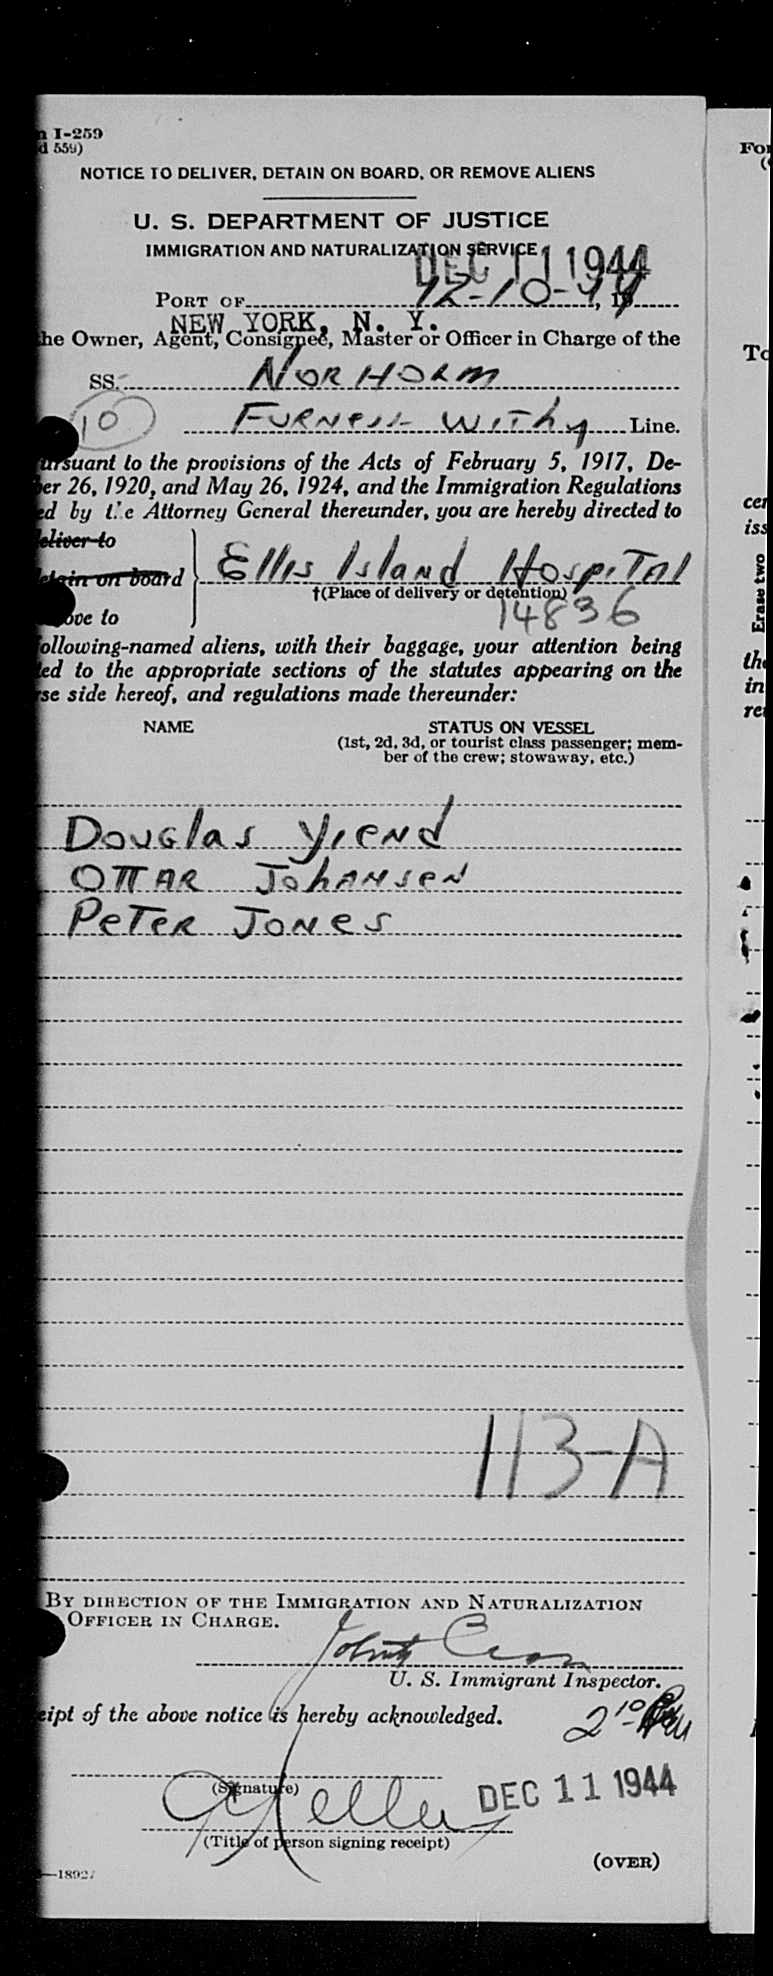 n I-259
d 559)
NOTICE TO DELIVER, DETAIN ON BOARD, OR REMOVE ALIENS
U. S. DEPARTMENT OF JUSTICE
IMMIGRATION AND NATURALIZATION SERVICE
DEC 11 1944
PORT OF 12-10-44, 19
NEW YORK, N. Y.
he Owner, Agent, Consignee, Master or Officer in Charge of the
SS. NORHOLM
10 FURNESS WITHY Line.
ursuant to the provisions of the Acts of February 5, 1917, De-
er 26, 1920, and May 26, 1924, and the Immigration Regulations
ed by the Attorney General thereunder, you are hereby directed to
eliver to
etain on board Ellis Island Hospital
†(Place of delivery or detention)
ove to 14836
ollowing-named aliens, with their baggage, your attention being
ted to the appropriate sections of the statutes appearing on the
rse side hereof, and regulations made thereunder:
NAME STATUS ON VESSEL
(1st, 2d, 3d, or tourist class passenger; mem-
ber of the crew; stowaway, etc.)
Douglas Yiend
OTTAR JohANSEN
PETER JONES
113-A
BY DIRECTION OF THE IMMIGRATION AND NATURALIZATION
OFFICER IN CHARGE.
U. S. Immigrant Inspector.
eipt of the above notice is hereby acknowledged.
2:10 PM
(Signature)
DEC 11 1944
(Title of person signing receipt)
(OVER)
—18927
For
(
To
cer
iss
Erase two
the
in
re